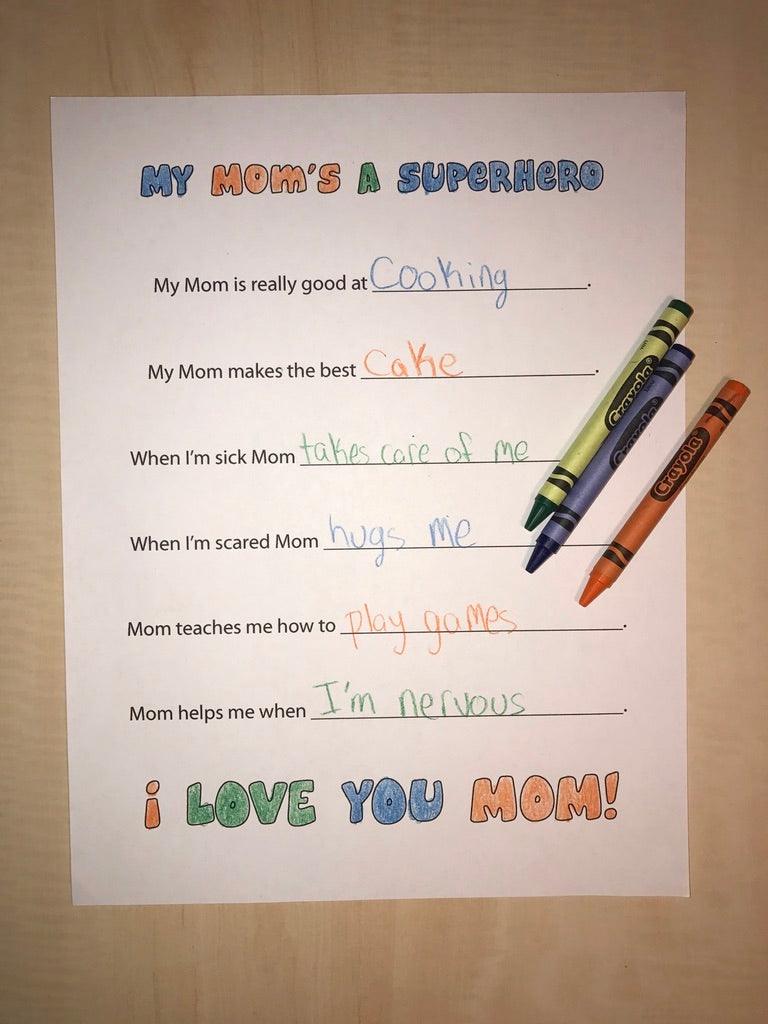 MY MOM'S A SUPERHERO
My Mom is really good at Cooking.
My Mom makes the best Cake.
When I'm sick Mom takes care of me
When I'm scared Mom hugs me
Mom teaches me how to play games.
Mom helps me when I'm nervous.
i LOVE YOU MOM!
Crayola
Crayola
Crayola